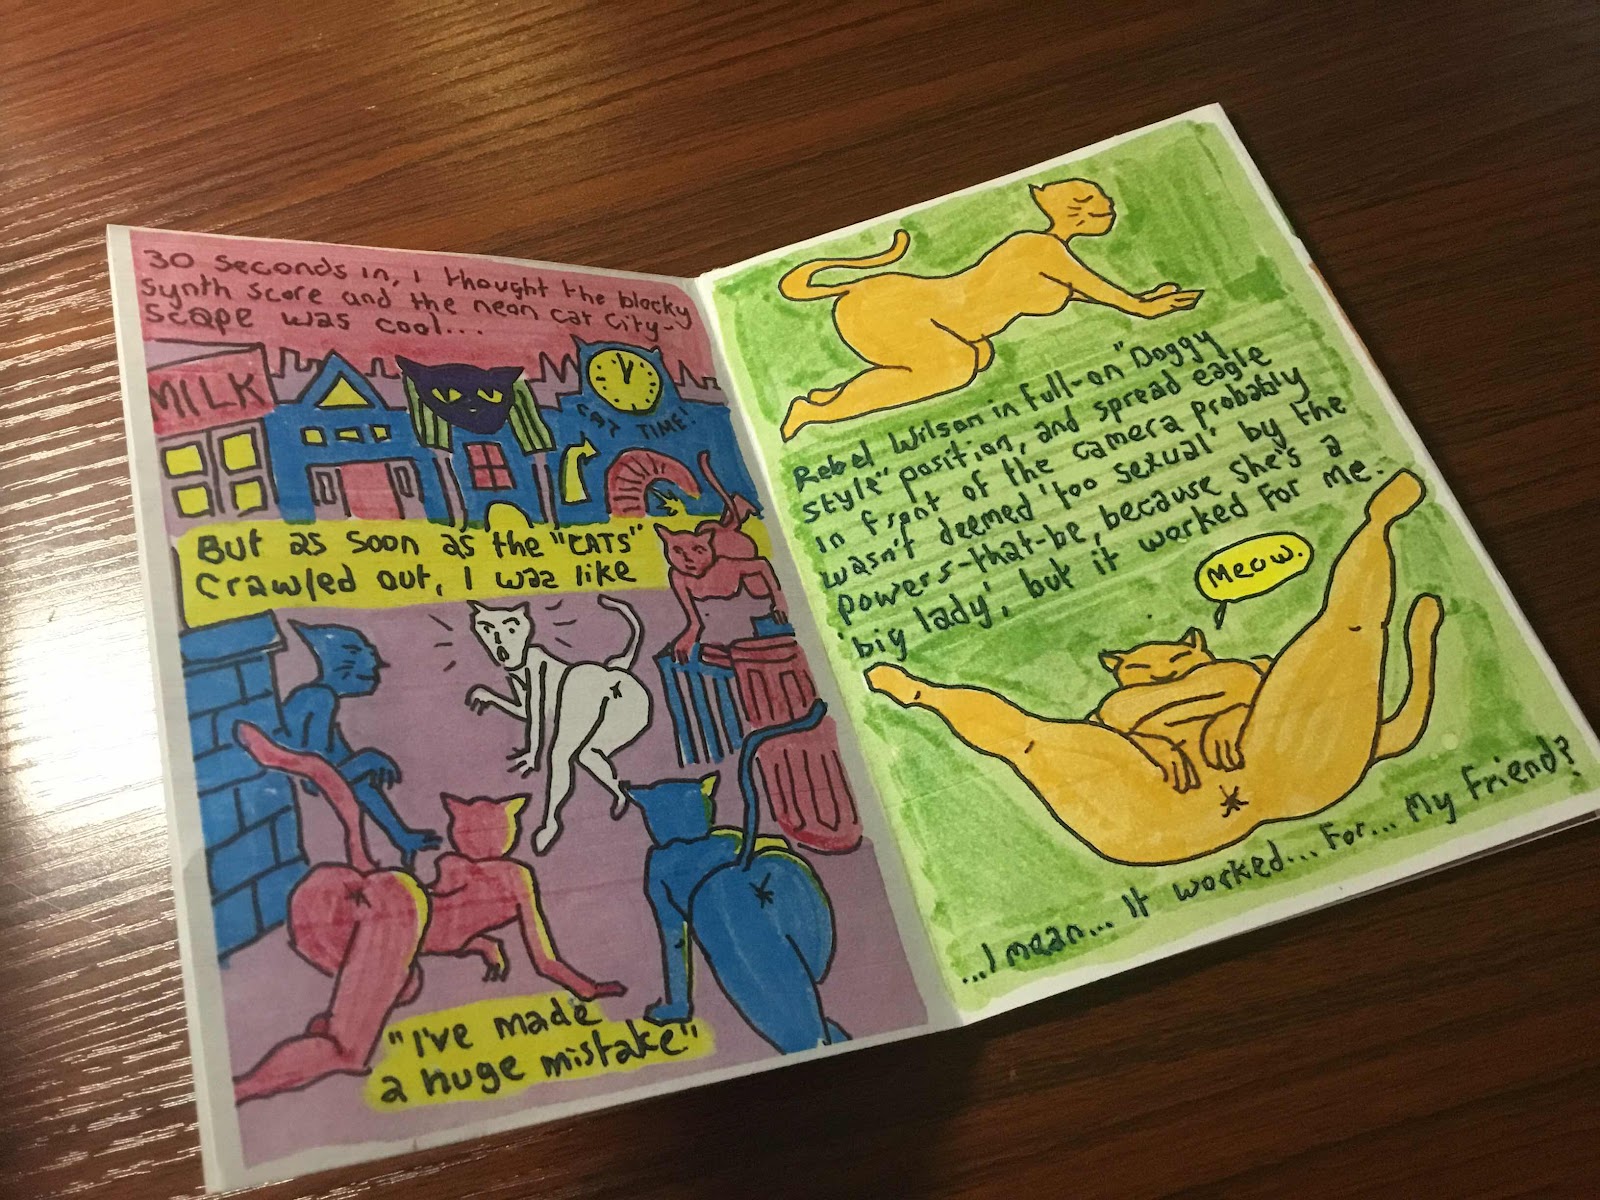 30 seconds in, I thought the blocky
synth score and the neon cat city-
scape was cool...
MILK
CAT TIME!
But as soon as the "CATS"
crawled out, I was like
"I've made
a huge mistake"
Rebel Wilson in full-on "Doggy
style" position, and spread eagle
in front of the camera probably
wasn't deemed 'too sexual' by the
powers-that-be, because she's a
'big lady', but it worked for me.
Meow.
...I mean... It worked... For... My Friend?